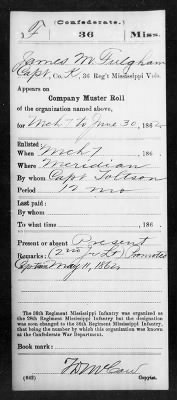 (Confederate.)
F 36 Miss.
James M Fulgham
Capt, Co. K, 36 Reg't Mississippi Vols.
Appears on
Company Muster Roll
of the organization named above,
for Mch 7 to June 30, 1862
Enlisted:
When Mch 7, 186
Where Meridian
By whom Capt
Period 12 mo
Last paid:
By whom
To what time , 186
Present or absent Present
Remarks: (2nd Promoted
Captain May 11, 1862
The 36th Regiment Mississippi Infantry was organized as
the 28th Regiment Mississippi Infantry but the designation
was soon changed to the 36th Regiment Mississippi Infantry,
that being the number by which this organization was known
at the Confederate War Department.
Book mark:
(642) Copyist.